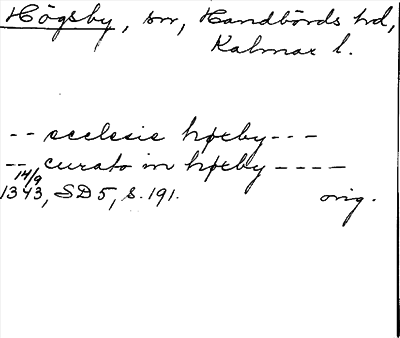 Högsby, sn, Handbörds hd,
Kalmar l.
-- ecclesie høxby ---
-- curato in høxby ----
14/9
1343, SD5, s. 191. orig.